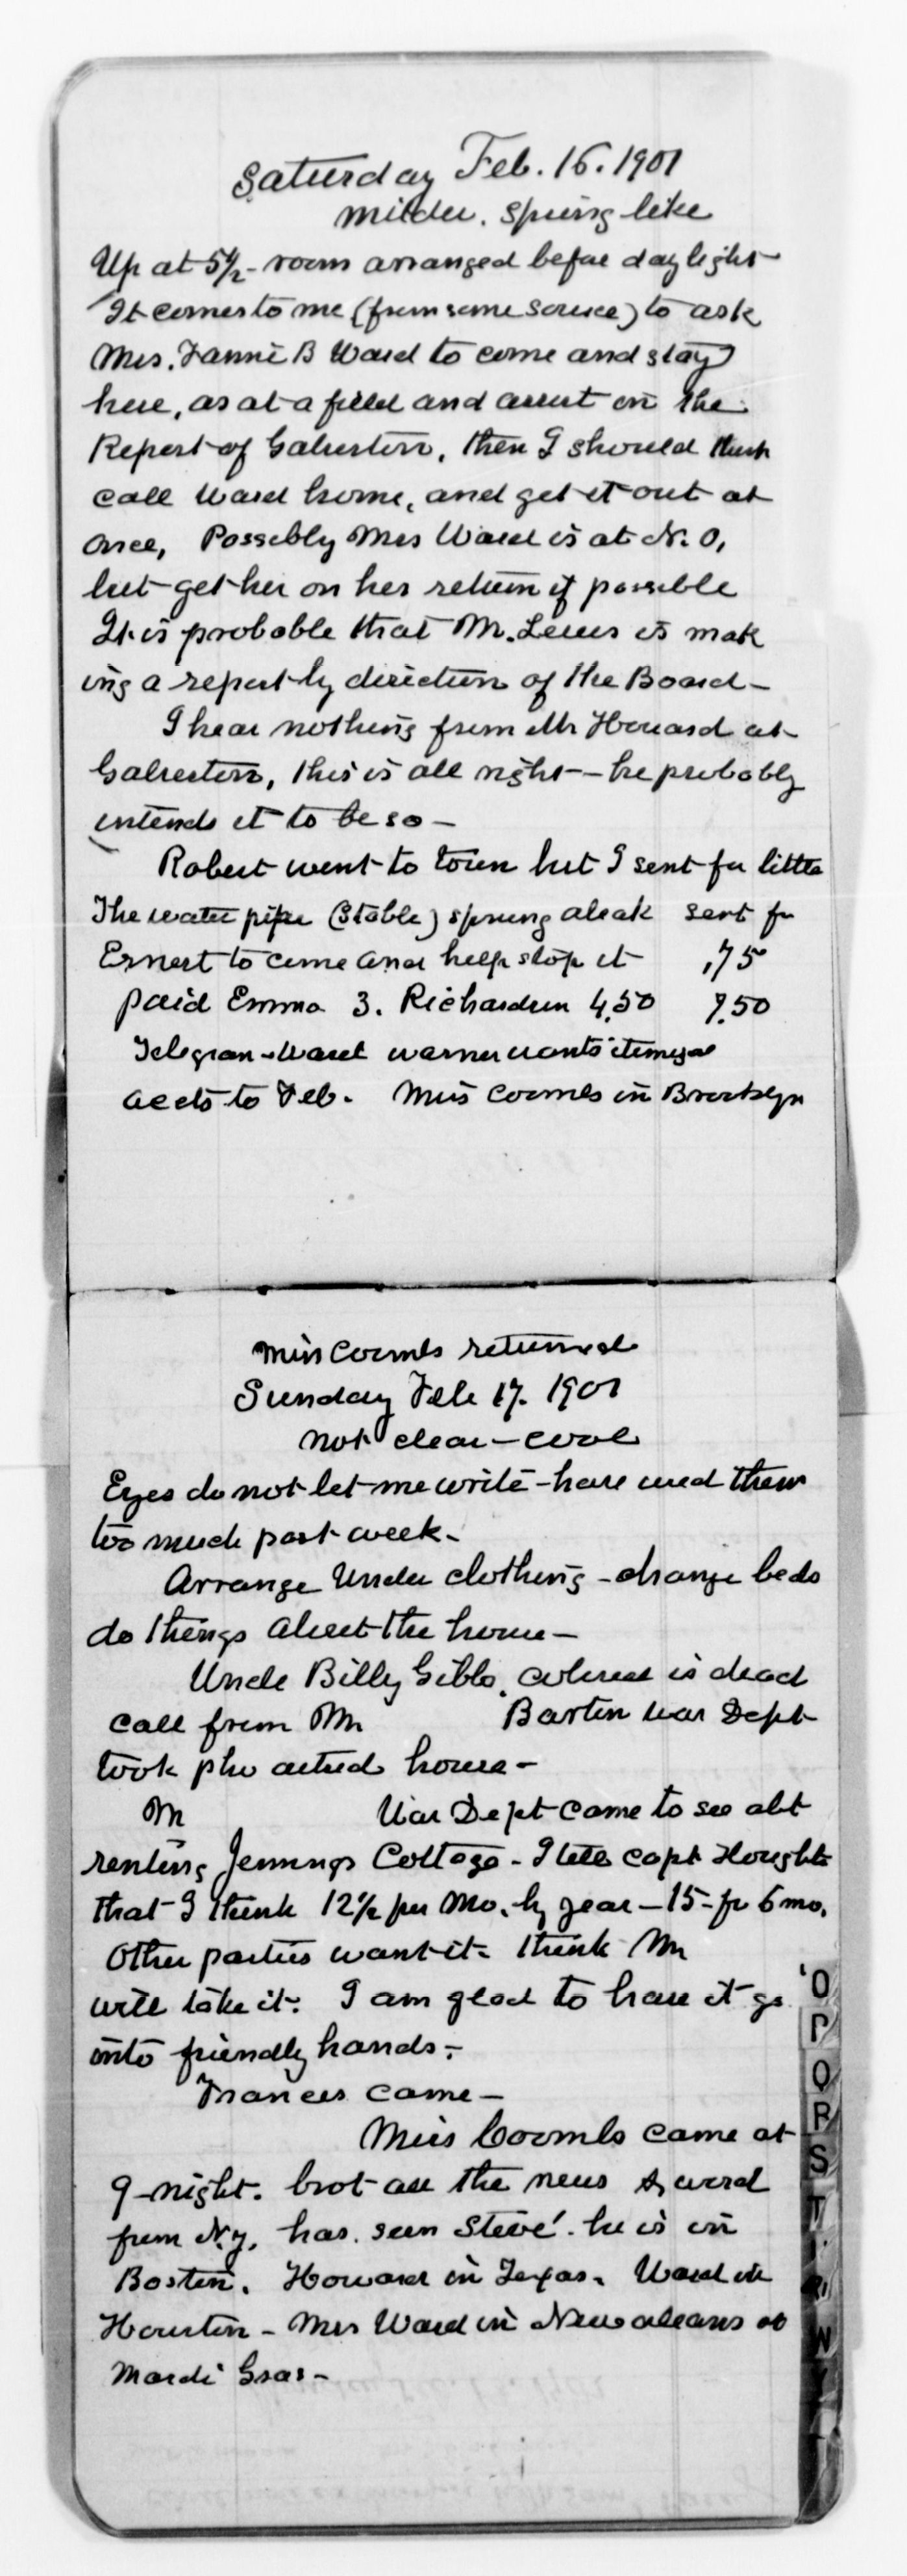 Saturday Feb. 16. 1901
milder. Spring like
Up at 5 1/2 - room arranged before day light
It comes to me (from some source) to ask
Mrs. Fannie B Ward to come and stay
here, as at a field and assist on the
Report of Galveston, then I should
call Ward home, and get it out at
once, Possibly Mrs Ward is at N. O,
but get her on her return if possible
It is probable that M. Lewis is mak
ing a report by direction of the Board -
I hear nothing from Mr Howard at
Galveston, this is all right - he probably
intends it to be so -
Robert went to town but I sent for little
The water pipe (Stable) sprung aleak sent for
Ernest to come and help stop it .75
paid Emma 3. Richardson 4.50 7.50
Telegram - Ward warner wants itemized
accts to Feb. Miss Coombs in Brooklyn
Miss Coombs returned
Sunday Feb 17. 1901
not clear - cool
Eyes do not let me write - have used them
too much past week -
Arrange Under clothing - change beds
do things about the house -
Uncle Billy Gibbs, colored is dead
call from Mr Barton War Dept
took pho house -
Mr War Dept came to see abt
renting Jennings Cottage - I tell capt Hought
that I think 12 1/2 per Mo. by year - 15 - for 6 mo.
Other parties want it - think Mr
will take it. I am glad to have it go
into friendly hands -
Frances came -
Miss Coombs came at
9 - night. brot all the news & word
from N.Y. has seen Steve. he is in
Boston. Howard in Texas. Ward in
Houston - Mrs Ward in New orleans at
Mardi Gras -
O
P
Q
R
S
T
W